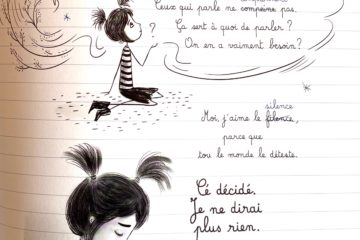 Ceux qui parle ne compreine pas.
Ça sert à quoi de parler ?
On en a vaiment besoin ?
?
?
silence
Moi, j'aime le
parce que
tou le monde le déteste.
Cé décidé.
Je ne dirai
plus rien.